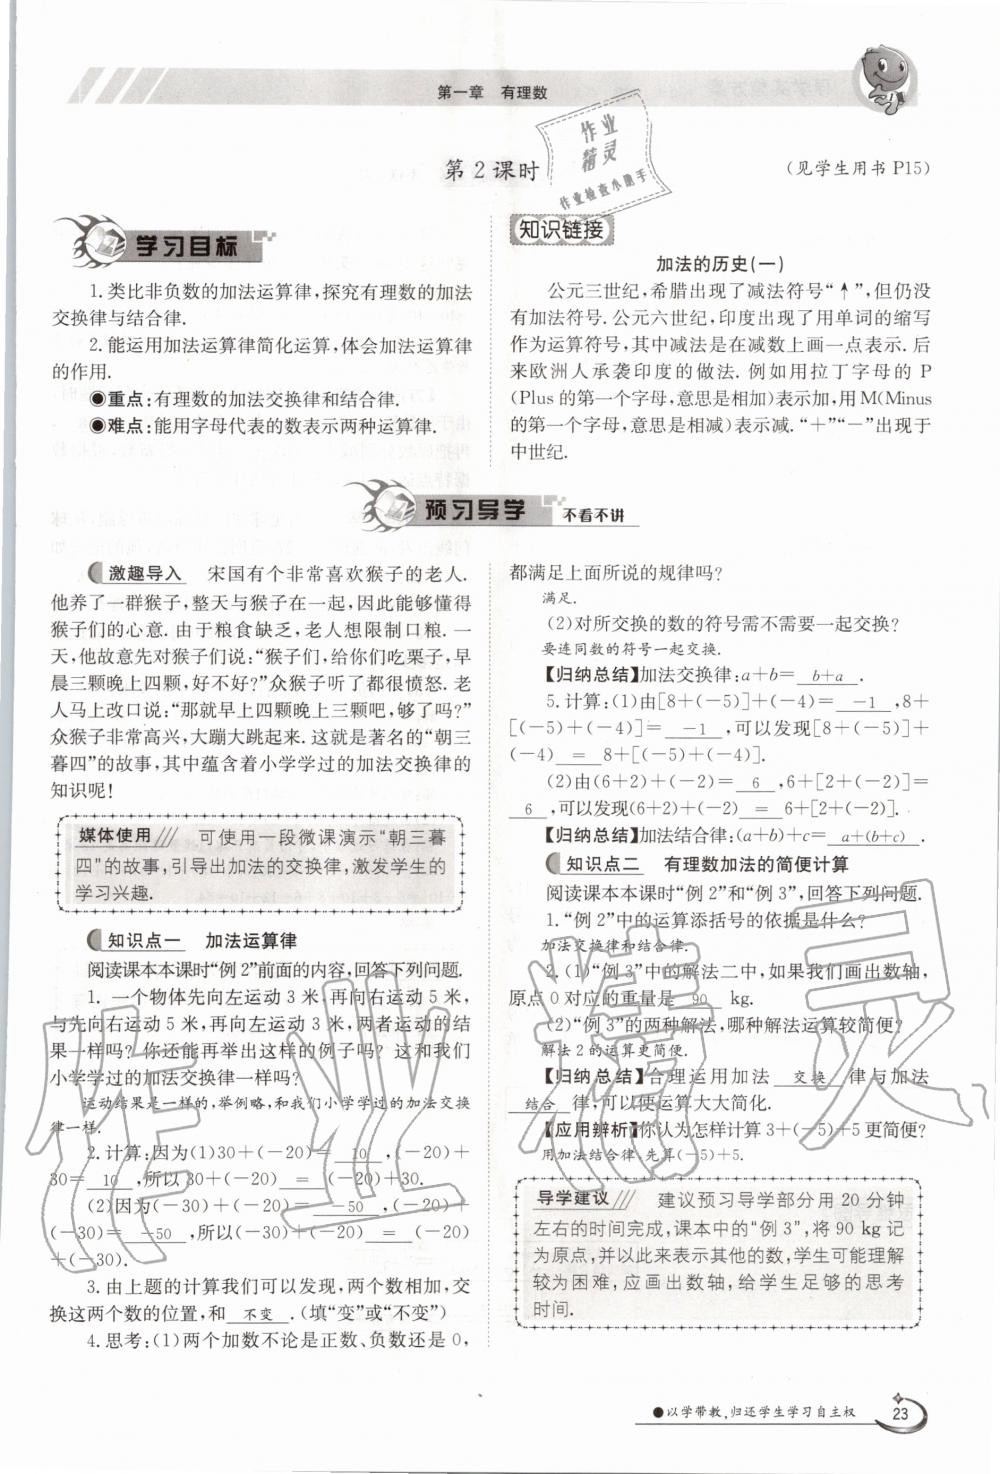 第一章 有理数
第2课时
(见学生用书 P15)
作业
精灵
作业检查小助手
学习目标
1. 类比非负数的加法运算律,探究有理数的加法
交换律与结合律.
2. 能运用加法运算律简化运算,体会加法运算律
的作用.
●重点:有理数的加法交换律和结合律.
●难点:能用字母代表的数表示两种运算律.
知识链接
加法的历史(一)
公元三世纪,希腊出现了减法符号“↑”,但仍没
有加法符号. 公元六世纪,印度出现了用单词的缩写
作为运算符号,其中减法是在减数上画一点表示. 后
来欧洲人承袭印度的做法. 例如用拉丁字母的 P
(Plus 的第一个字母,意思是相加)表示加,用 M(Minus
的第一个字母,意思是相减)表示减. “+”“−”出现于
中世纪.
预习导学 不看不讲
激趣导入 宋国有个非常喜欢猴子的老人.
他养了一群猴子,整天与猴子在一起,因此能够懂得
猴子们的心意. 由于粮食缺乏,老人想限制口粮. 一
天,他故意先对猴子们说:“猴子们,给你们吃栗子,早
晨三颗晚上四颗,好不好?”众猴子听了都很愤怒. 老
人马上改口说:“那就早上四颗晚上三颗吧,够了吗?”
众猴子非常高兴,大蹦大跳起来. 这就是著名的“朝三
暮四”的故事,其中蕴含着小学学过的加法交换律的
知识呢!
媒体使用 可使用一段微课演示“朝三暮
四”的故事,引导出加法的交换律,激发学生的
学习兴趣.
知识点一 加法运算律
阅读课本本课时“例 2”前面的内容,回答下列问题.
1. 一个物体先向左运动 3 米,再向右运动 5 米,
与先向右运动 5 米,再向左运动 3 米,两者运动的结
果一样吗? 你还能再举出这样的例子吗? 这和我们
小学学过的加法交换律一样吗?
运动结果是一样的,举例略,和我们小学学过的加法交换
律一样.
2. 计算:因为(1)30+(−20)= 10 ,(−20)+
30= 10 ,所以 30+(−20) = (−20)+30.
(2)因为(−30)+(−20)= −50 ,(−20)+
(−30)= −50 ,所以(−30)+(−20) = (−20)
+(−30).
3. 由上题的计算我们可以发现,两个数相加,交
换这两个数的位置,和 不变 .(填“变”或“不变”)
4. 思考:(1)两个加数不论是正数、负数还是 0,
都满足上面所说的规律吗?
满足.
(2)对所交换的数的符号需不需要一起交换?
要连同数的符号一起交换.
【归纳总结】加法交换律:a+b= b+a .
5. 计算:(1)由[8+(−5)]+(−4)= −1 ,8+
[(−5)+(−4)]= −1 ,可以发现[8+(−5)]+
(−4) = 8+[(−5)+(−4)].
(2)由(6+2)+(−2)= 6 ,6+[2+(−2)]=
6 ,可以发现(6+2)+(−2) = 6+[2+(−2)].
【归纳总结】加法结合律:(a+b)+c= a+(b+c) .
知识点二 有理数加法的简便计算
阅读课本本课时“例 2”和“例 3”,回答下列问题.
1. “例 2”中的运算添括号的依据是什么?
加法交换律和结合律.
2. (1)“例 3”中的解法二中,如果我们画出数轴,
原点 0 对应的重量是 90 kg.
(2)“例 3”的两种解法,哪种解法运算较简便?
解法 2 的运算更简便.
【归纳总结】合理运用加法 交换 律与加法
结合 律,可以使运算大大简化.
【应用辨析】你认为怎样计算 3+(−5)+5 更简便?
用加法结合律,先算(−5)+5.
导学建议 建议预习导学部分用 20 分钟
左右的时间完成,课本中的“例 3”,将 90 kg 记
为原点,并以此来表示其他的数,学生可能理解
较为困难,应画出数轴,给学生足够的思考
时间.
作业精灵
●以学带教,归还学生学习自主权
23